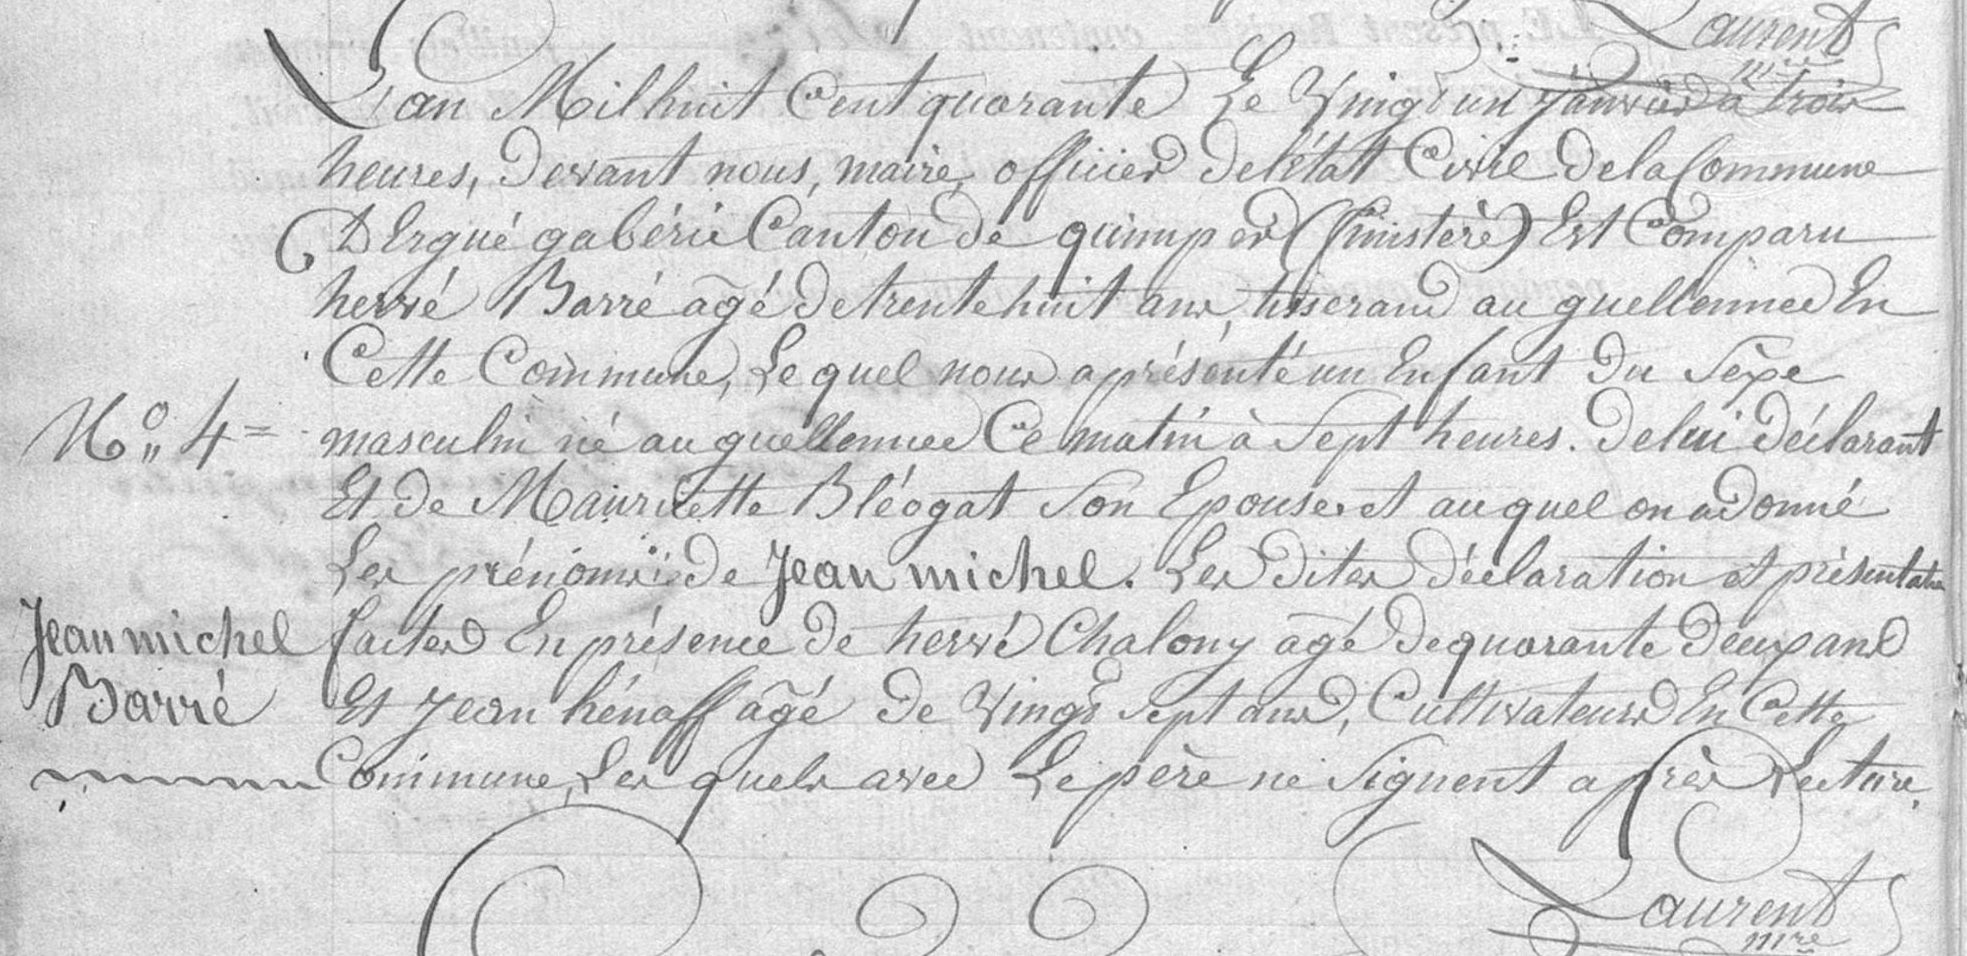 Laurent
mre
L'an Mil huit Cent quarante Le Vingt un janvier à trois
heures, Devant nous, maire, officier de l'état Civil de la Commune
D'Ergué gabéric Canton de quimper (finistère) Est Comparu
hervé Barré agé de trente huit ans, tisserand au guellennec En
Cette Commune, Le quel nous a présenté un Enfant Du Sexe
N° 4 = masculin né au guellennec Ce matin à Sept heures. De lui déclarant
Et de Mauricette Bléogat Son Epouse et au quel on a Donné
Les prénoms de Jean michel. Les dites déclaration et présentation
Jean michel faites En présence de hervé Chalony agé de quarante Deux ans
Barré Et Jean hénaff agé de Vingt Sept ans, Cultivateurs En Cette
Commune, Les quels avec Le père ne Signent après Lecture.
Laurent
mre